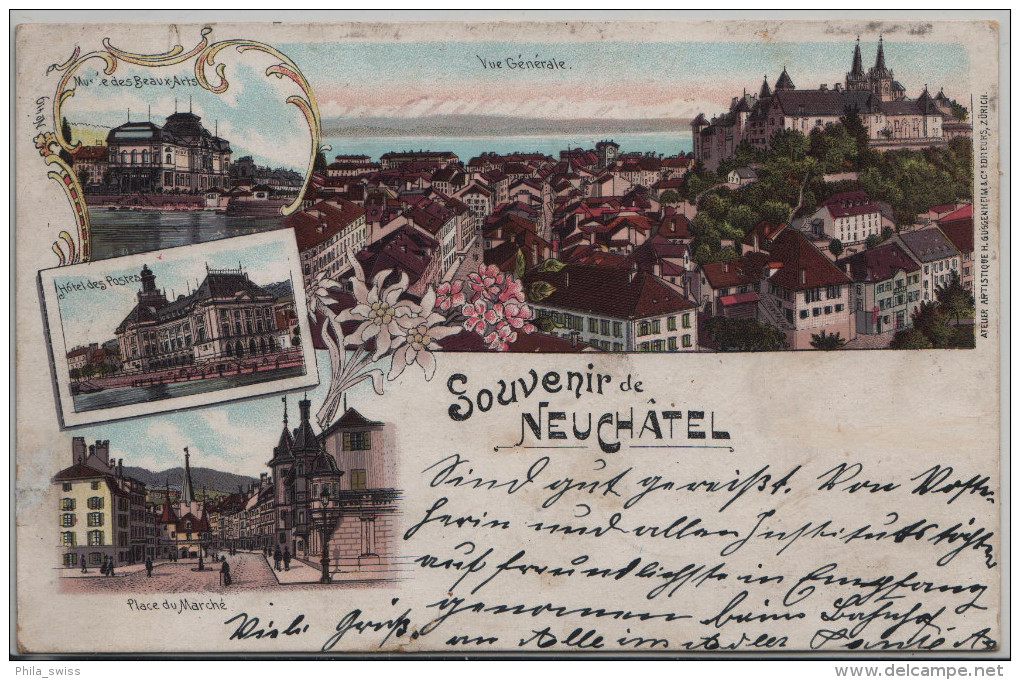 Musée des Beaux-Arts
Neuchâtel
Vue Générale.
Hôtel des Postes
Place du Marché
Souvenir de
NEUCHÂTEL
ATELIER ARTISTIQUE H. GUGGENHEIM & Co EDITEURS, ZÜRICH.
Sind gut gereißt. Von Vorste-
herin und allen Institutstöchtern
auf freundlichste in Empfang
genomen beim Bahnhof
Viele Grüße an Alle im Adler
Phila_swiss
www.delcampe.net